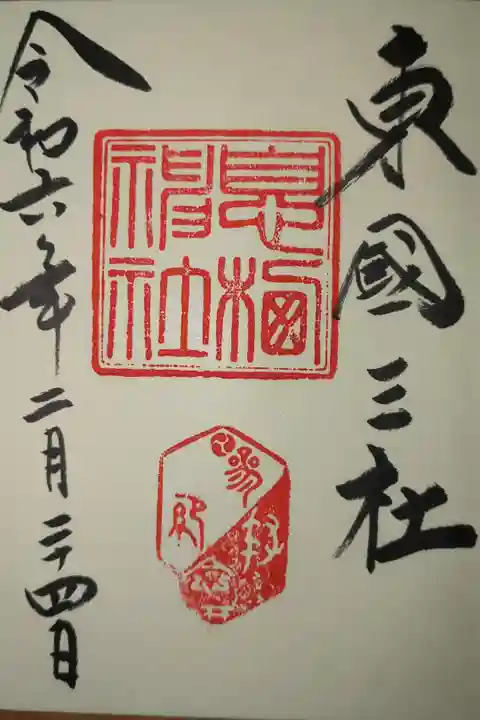 東國三社
息栖神社
令和六年二月二十四日